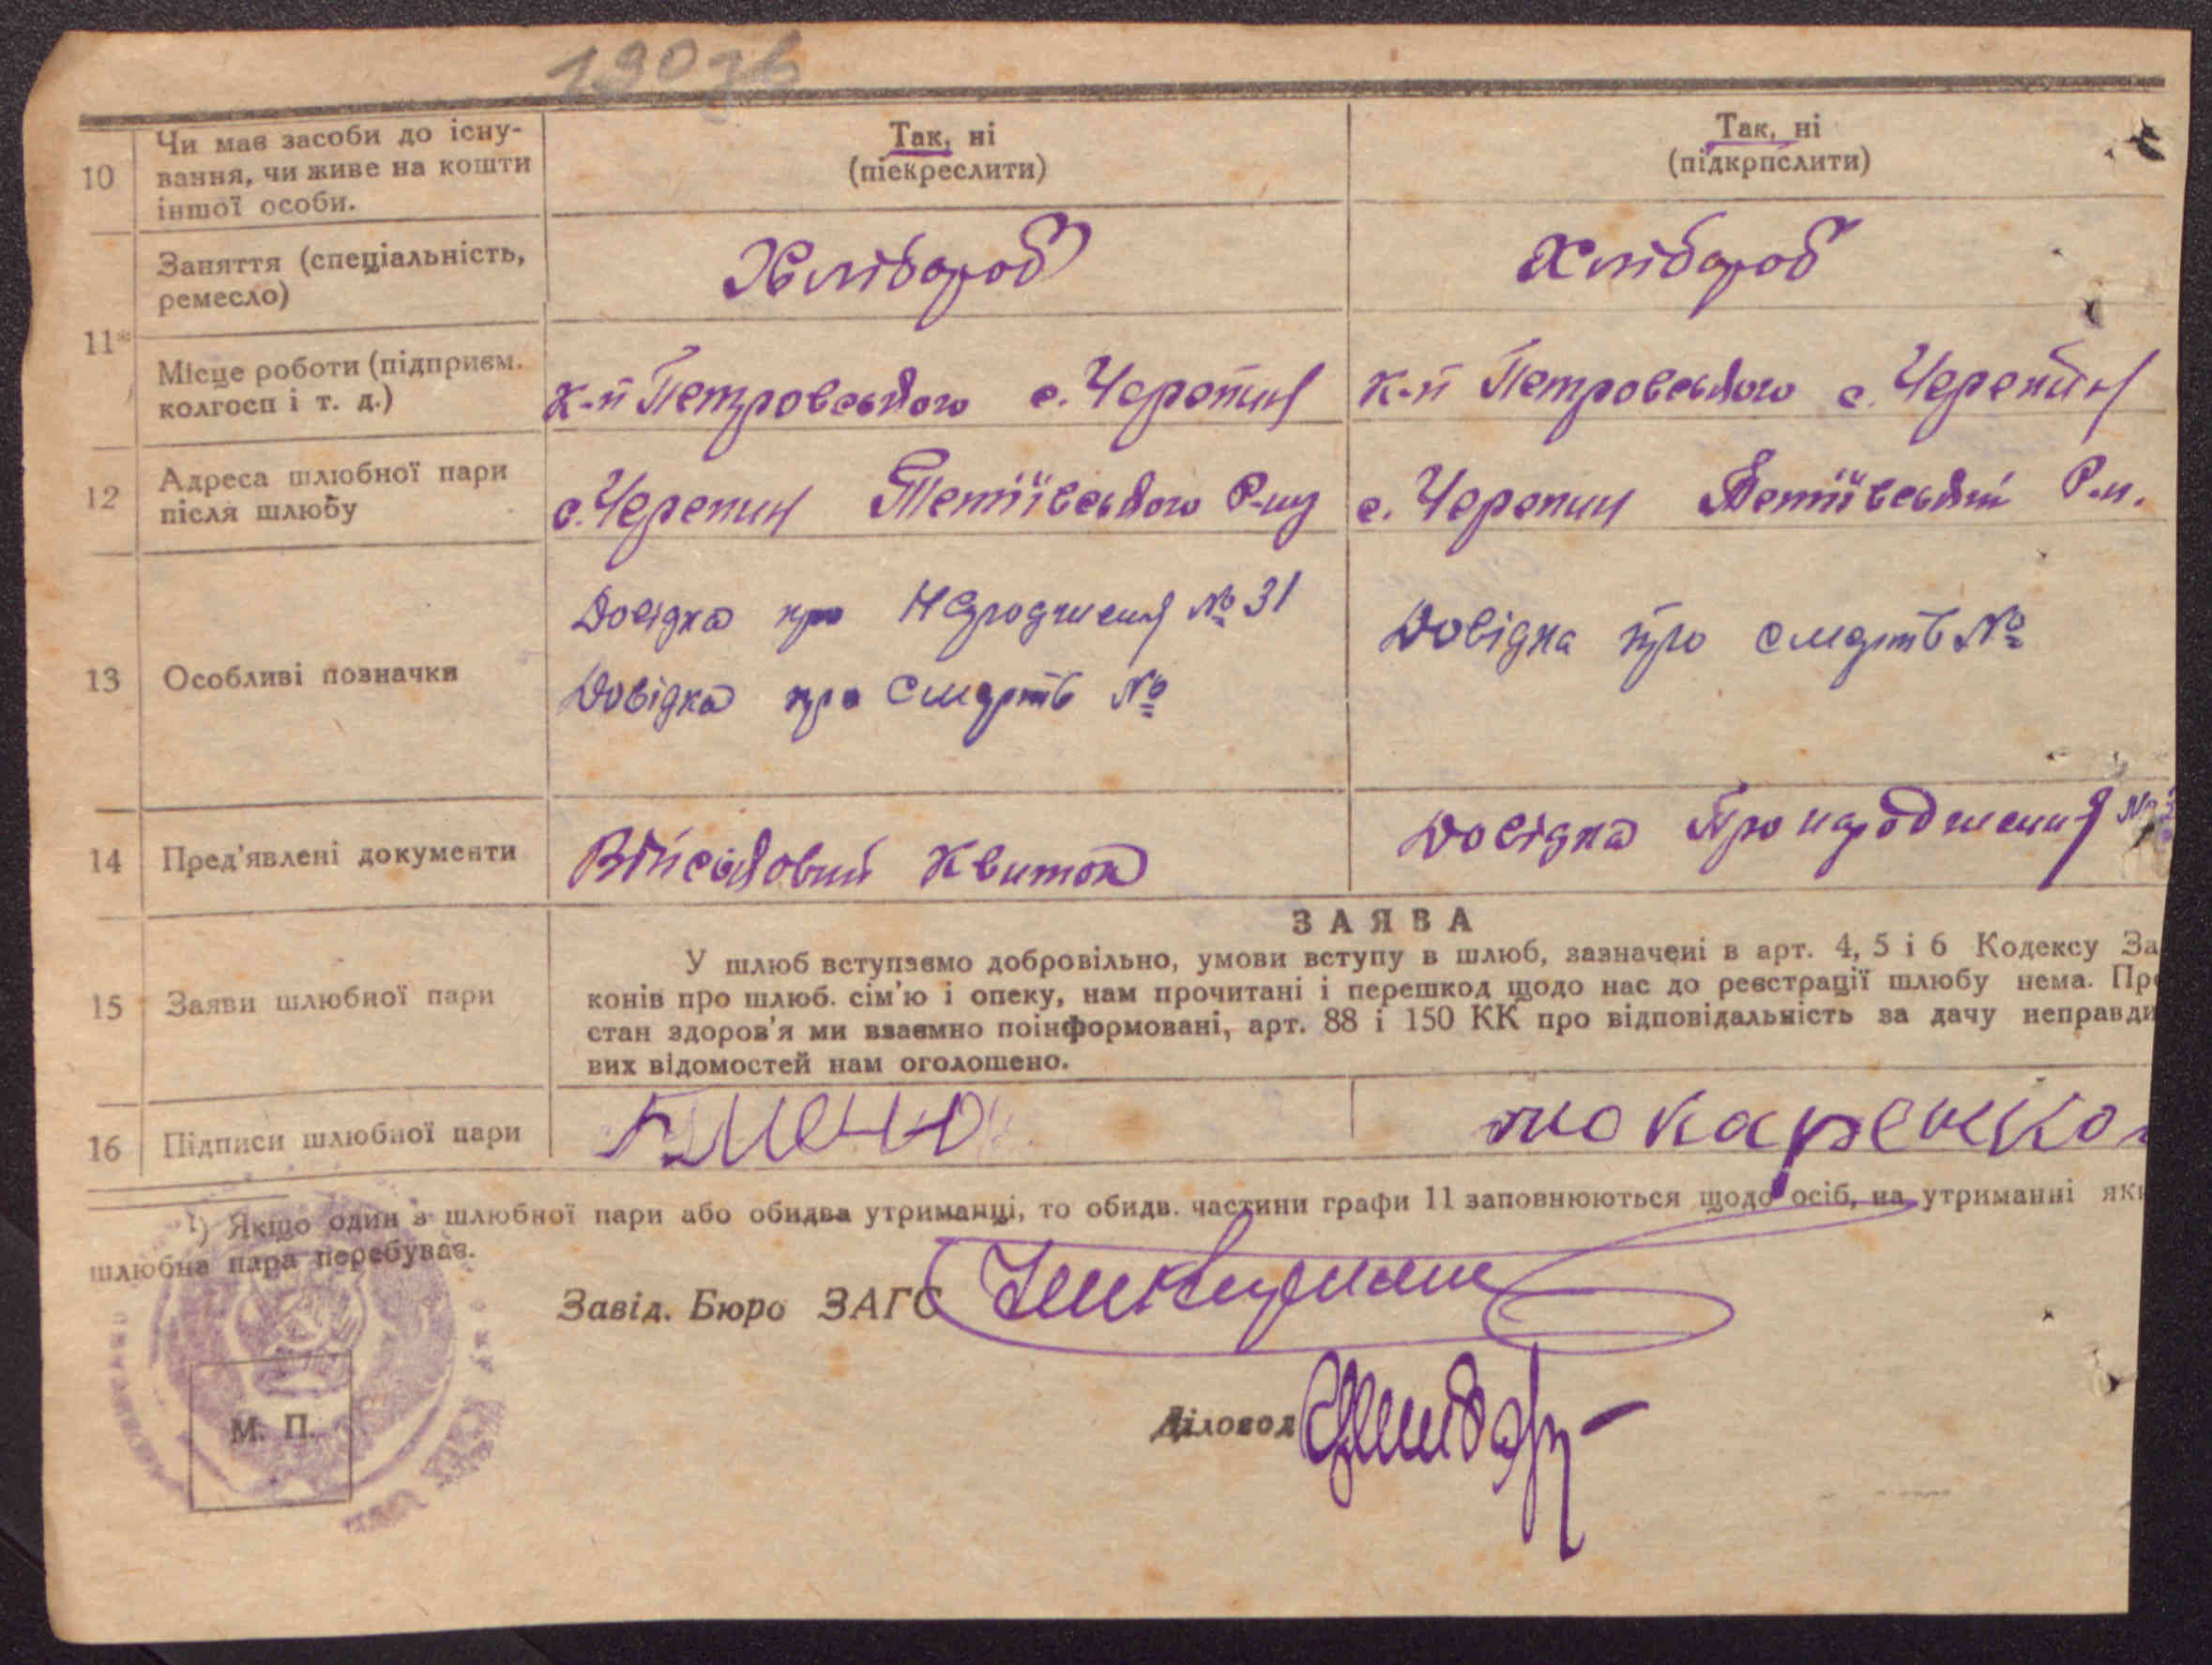 10 Чи має засоби до існу-
вання, чи живе на кошти
іншої особи.
Так, ні
(піекреслити)
Так, ні
(підкрпслити)
11*
Заняття (спеціальність,
ремесло)
Хлібороб
Хлібороб
Місце роботи (підприєм.
колгосп і т. д.)
к-п Петровського с. Черепин
к-п Петровського с. Черепин
12 Адреса шлюбної пари
після шлюбу
с. Черепин Тетіївського Р-ну
с. Черепин Тетіївський Р-н.
13 Особливі позначки
Довідка про Народження № 31
Довідка про смерть №
Довідка про смерть №
14 Пред'явлені документи
Військовий квиток
Довідка Про народження №
15 Заяви шлюбної пари
ЗАЯВА
У шлюб вступаємо добровільно, умови вступу в шлюб, зазначені в арт. 4, 5 і 6 Кодексу За
конів про шлюб. сім'ю і опеку, нам прочитані і перешкод щодо нас до реєстрації шлюбу нема. Пр
стан здоров'я ми взаємно поінформовані, арт. 88 і 150 КК про відповідальність за дачу неправди
вих відомостей нам оголошено.
16 Підписи шлюбної пари
токаренко
1) Якщо один з шлюбної пари або обидва утриманці, то обидв. частини графи 11 заповнюються щодо осіб, на утриманні як
шлюбна пара перебуває.
Завід. Бюро ЗАГС
М. П.
Діловод